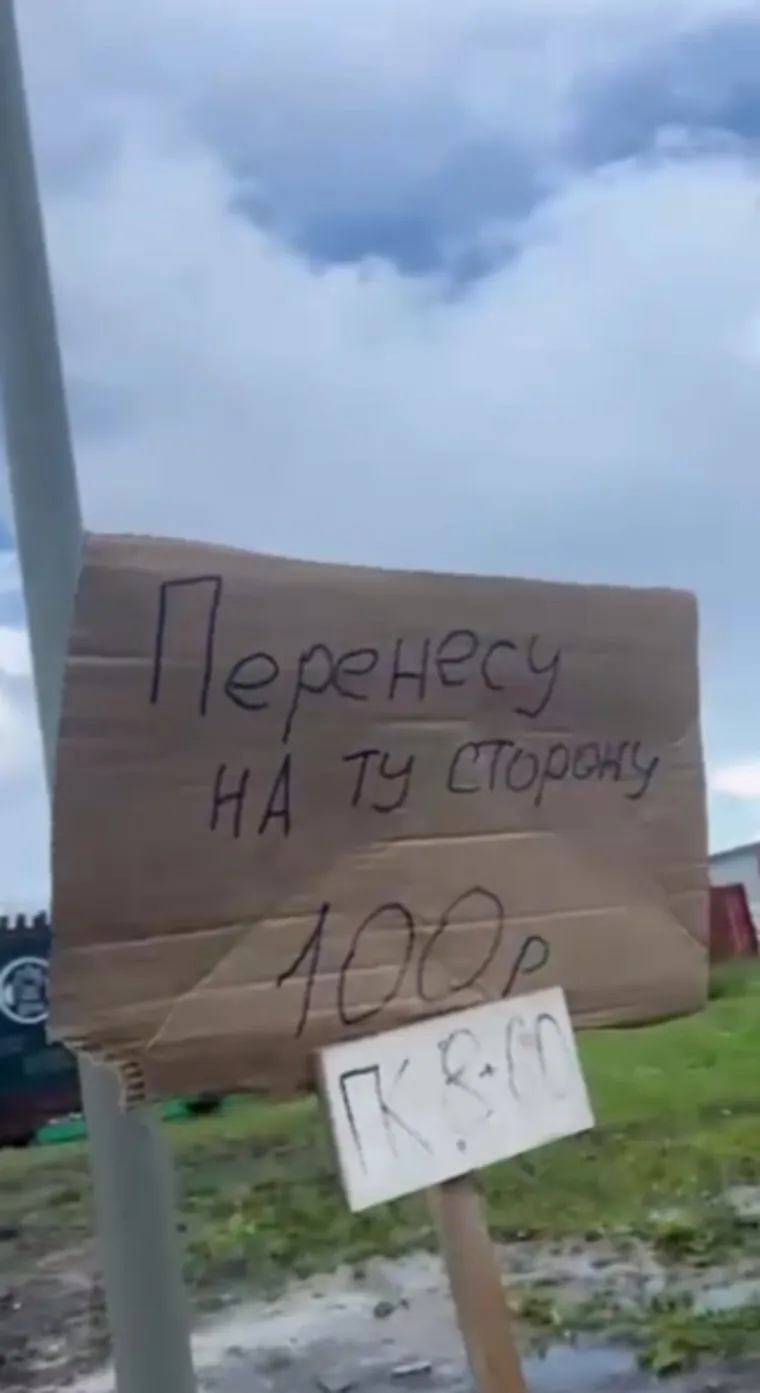 Перенесу
НА ТУ СТОРОНУ
100р
ПК 8+00